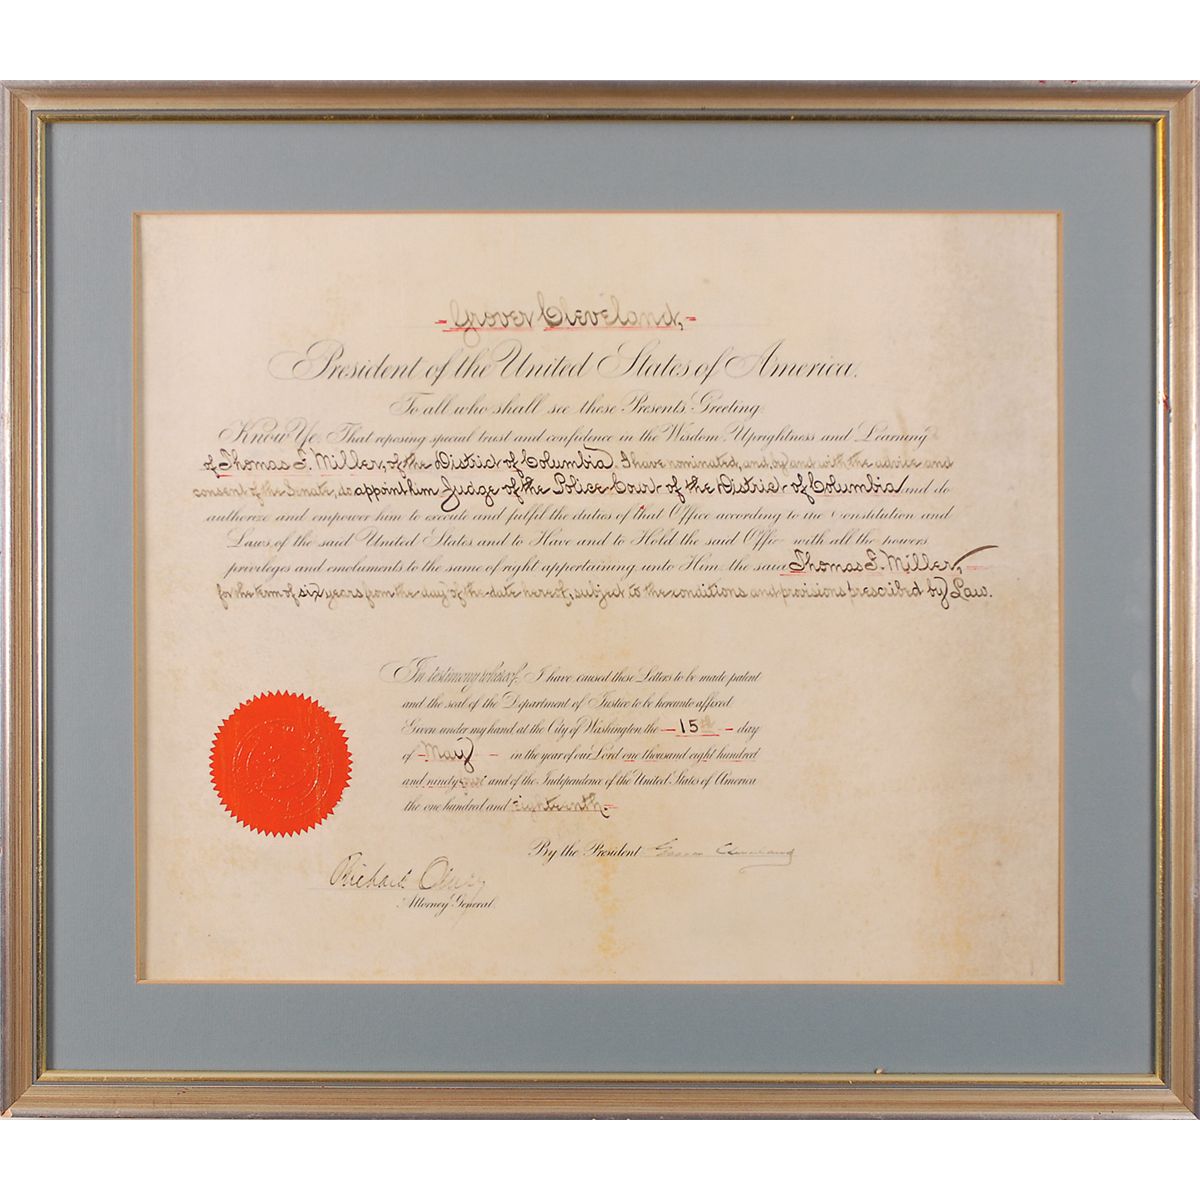 Grover Cleveland,
President of the United States of America.
To all who shall see these Presents, Greeting:
Know Ye, That reposing special trust and confidence in the Wisdom, Uprightness and Learning
of Thomas F. Miller, of the District of Columbia, I have nominated, and, by and with the advice and
consent of the Senate, do appoint him Judge of the Police Court of the District of Columbia, and do
authorize and empower him to execute and fulfil the duties of that Office according to the Constitution and
Laws of the said United States and to Have and to Hold the said Office with all the powers,
privileges and emoluments to the same of right appertaining unto Him the said Thomas F. Miller,
for the term of six years from the day of the date hereof, subject to the conditions and provisions prescribed by Law.
In testimony whereof, I have caused these Letters to be made patent
and the seal of the Department of Justice to be hereunto affixed
Given under my hand at the City of Washington the 15th day
of May in the year of our Lord one thousand eight hundred
and ninety and of the Independence of the United States of America
the one hundred and eighteenth.
By the President Grover Cleveland
Richard Olney
Attorney General.